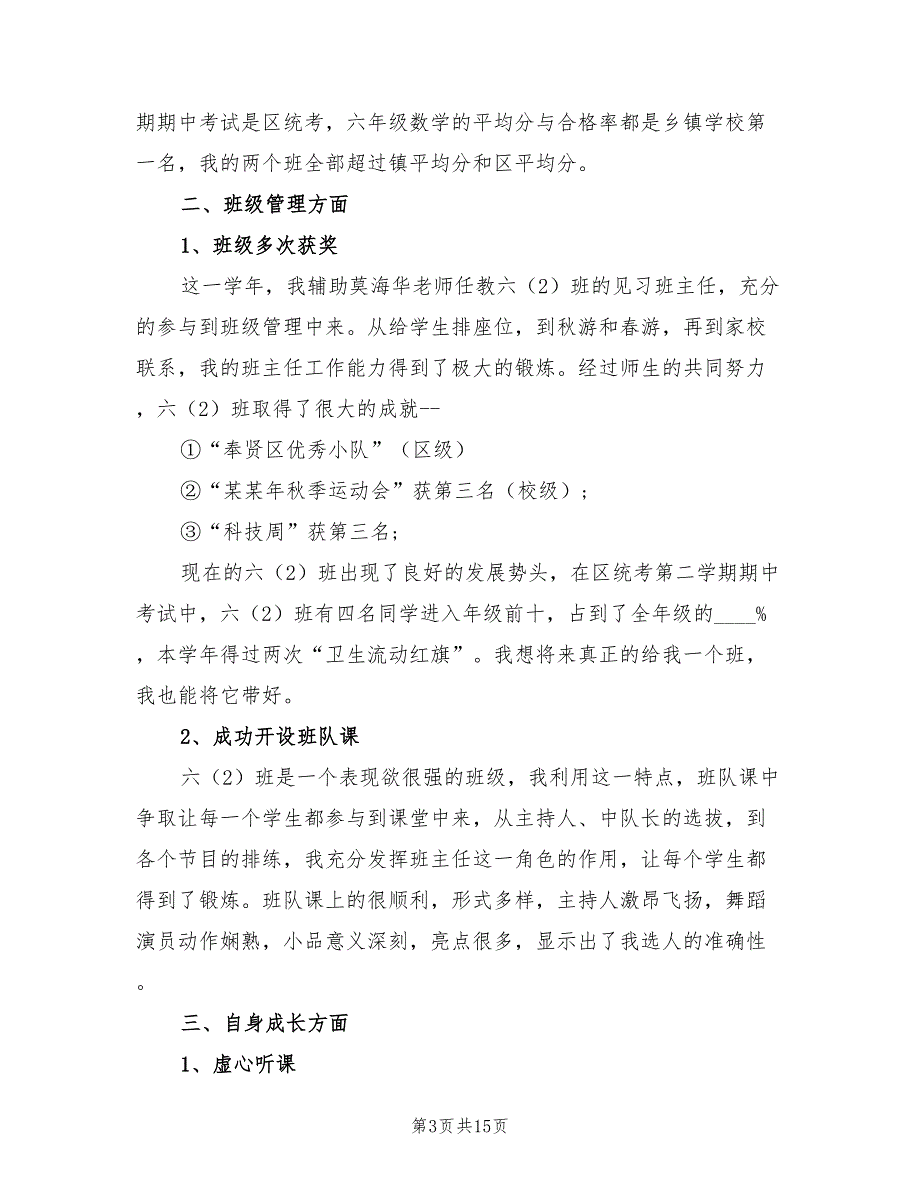 期期中考试是区统考，六年级数学的平均分与合格率都是乡镇学校第
一名，我的两个班全部超过镇平均分和区平均分。
二、班级管理方面
1、班级多次获奖
这一学年，我辅助莫海华老师任教六（2）班的见习班主任，充分
的参与到班级管理中来。从给学生排座位，到秋游和春游，再到家校
联系，我的班主任工作能力得到了极大的锻炼。经过师生的共同努力
，六（2）班取得了很大的成就--
①“奉贤区优秀小队”（区级）
②“某某年秋季运动会”获第三名（校级）;
③“科技周”获第三名;
现在的六（2）班出现了良好的发展势头，在区统考第二学期期中
考试中，六（2）班有四名同学进入年级前十，占到了全年级的____%
，本学年得过两次“卫生流动红旗”。我想将来真正的给我一个班，
我也能将它带好。
2、成功开设班队课
六（2）班是一个表现欲很强的班级，我利用这一特点，班队课中
争取让每一个学生都参与到课堂中来，从主持人、中队长的选拔，到
各个节目的排练，我充分发挥班主任这一角色的作用，让每个学生都
得到了锻炼。班队课上的很顺利，形式多样，主持人激昂飞扬，舞蹈
演员动作娴熟，小品意义深刻，亮点很多，显示出了我选人的准确性
。
三、自身成长方面
1、虚心听课
第3页共15页